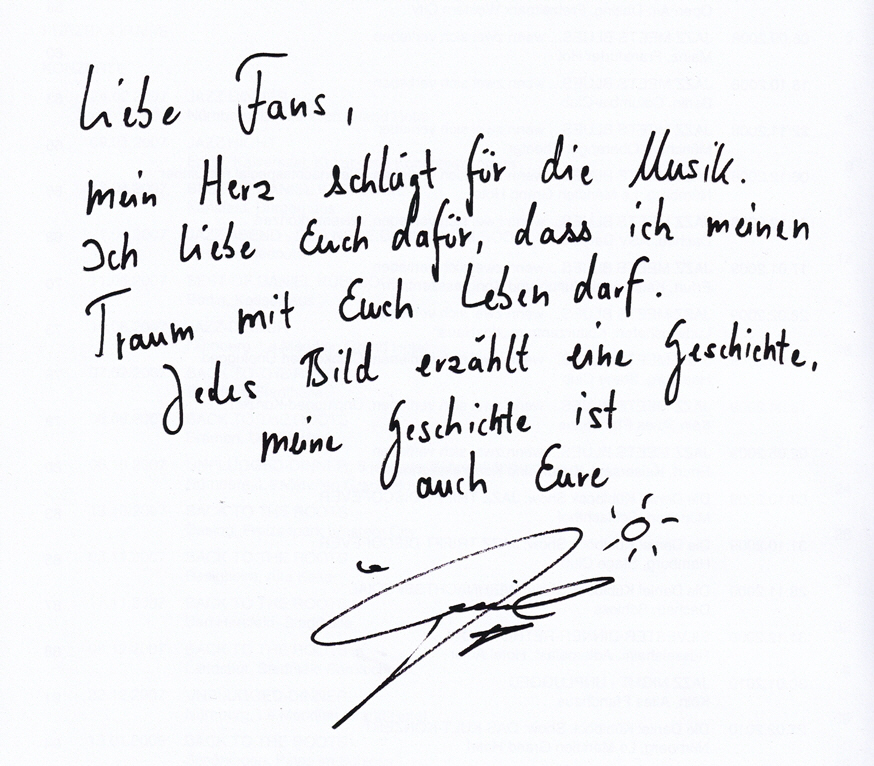 Liebe Fans,
mein Herz schlägt für die Musik.
Ich liebe Euch dafür, dass ich meinen
Traum mit Euch Leben darf.
Jedes Bild erzählt eine Geschichte,
meine Geschichte ist
auch Eure